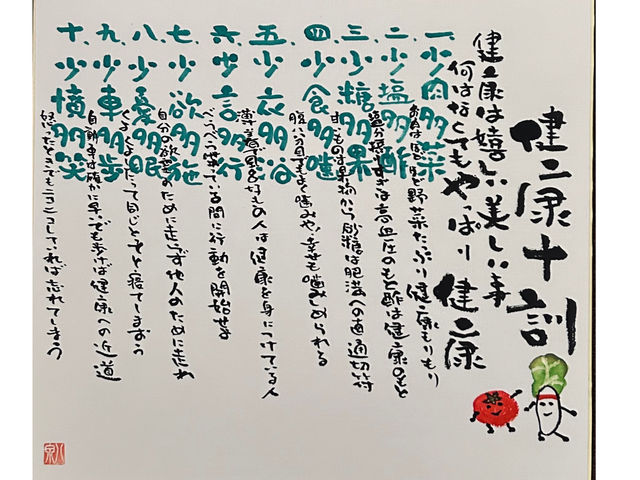 健康十訓
健康は嬉しい美しい事
何はなくてもやっぱり 健康
一、少肉多菜
お肉ほどほど野菜たっぷり健康もりもり
二、少塩多酢
塩分摂りすぎは高血圧のもと酢は健康のもと
三、少糖多果
甘いものは果物から砂糖は肥満への直通切符
四、少食多噛
腹八分目でよく噛みや!幸せも噛みしめられる
五、少衣多浴
薄着で風呂好きの人は健康を身につけている人
六、少言多行
べらべら喋っている間に行動を開始せよ
七、少欲多施
自分の欲望のために走らず他人のために走れ
八、少憂多眠
くよくよしたって同じとっとと寝てしまおう
九、少車多歩
自動車は確かに早いでも歩けば健康への近道
十、少憤多笑
怒ったときでもニコニコしていれば忘れてしまう